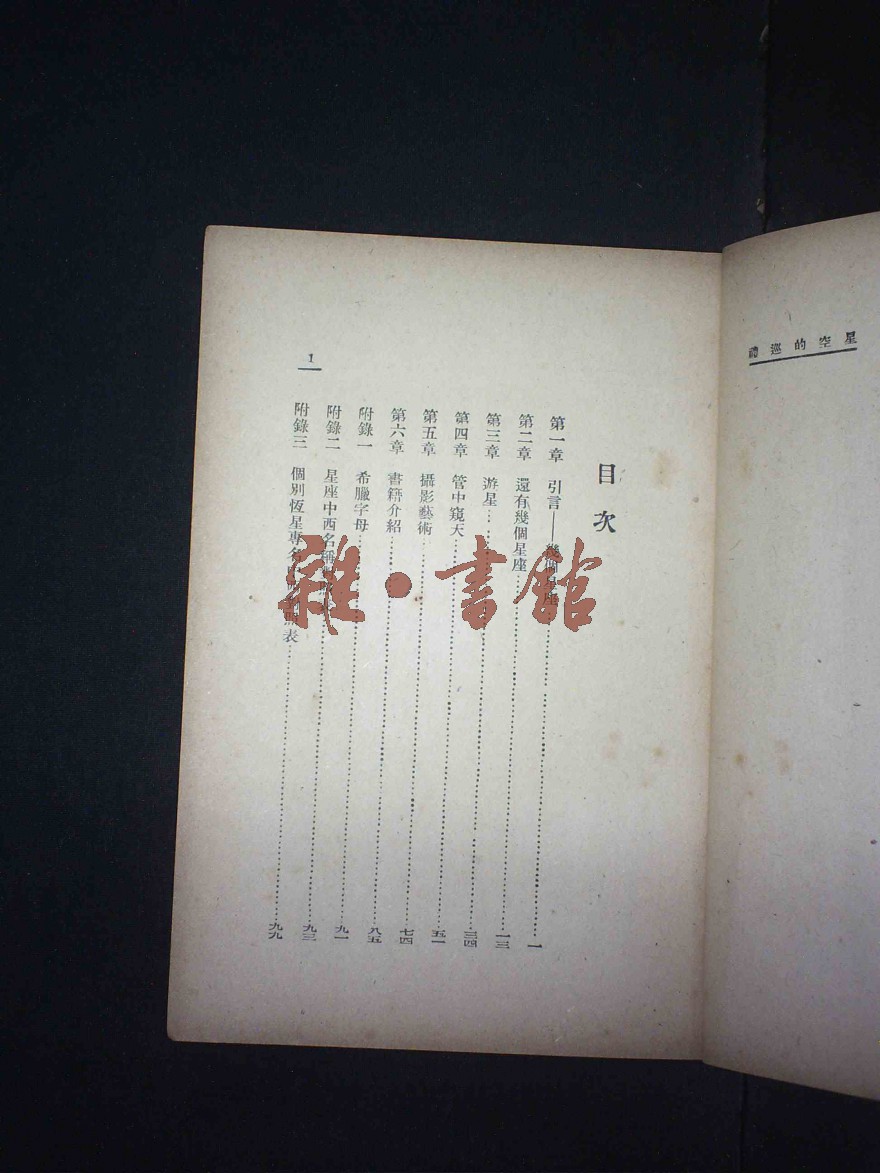 星空的巡禮
目次
第一章 引言——幾個星座……一
第二章 還有幾個星座……一三
第三章 游星……三四
第四章 管中窺天……五一
第五章 攝影藝術……七四
第六章 書籍介紹……八五
附錄一 希臘字母……九一
附錄二 星座中西名稱……九三
附錄三 個別恆星專名對照表……九九
1
雜·書館